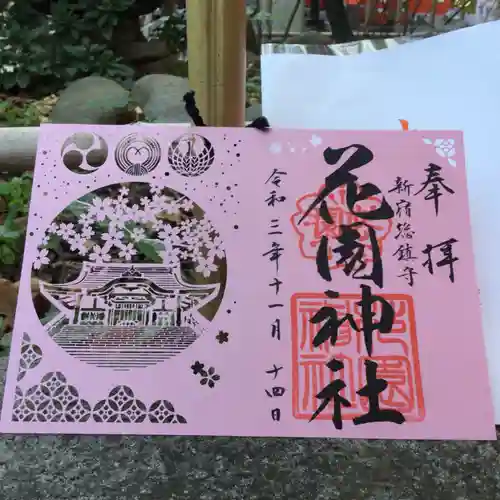 奉拝
新宿総鎮守
花園神社
令和三年十一月十四日
花園神社